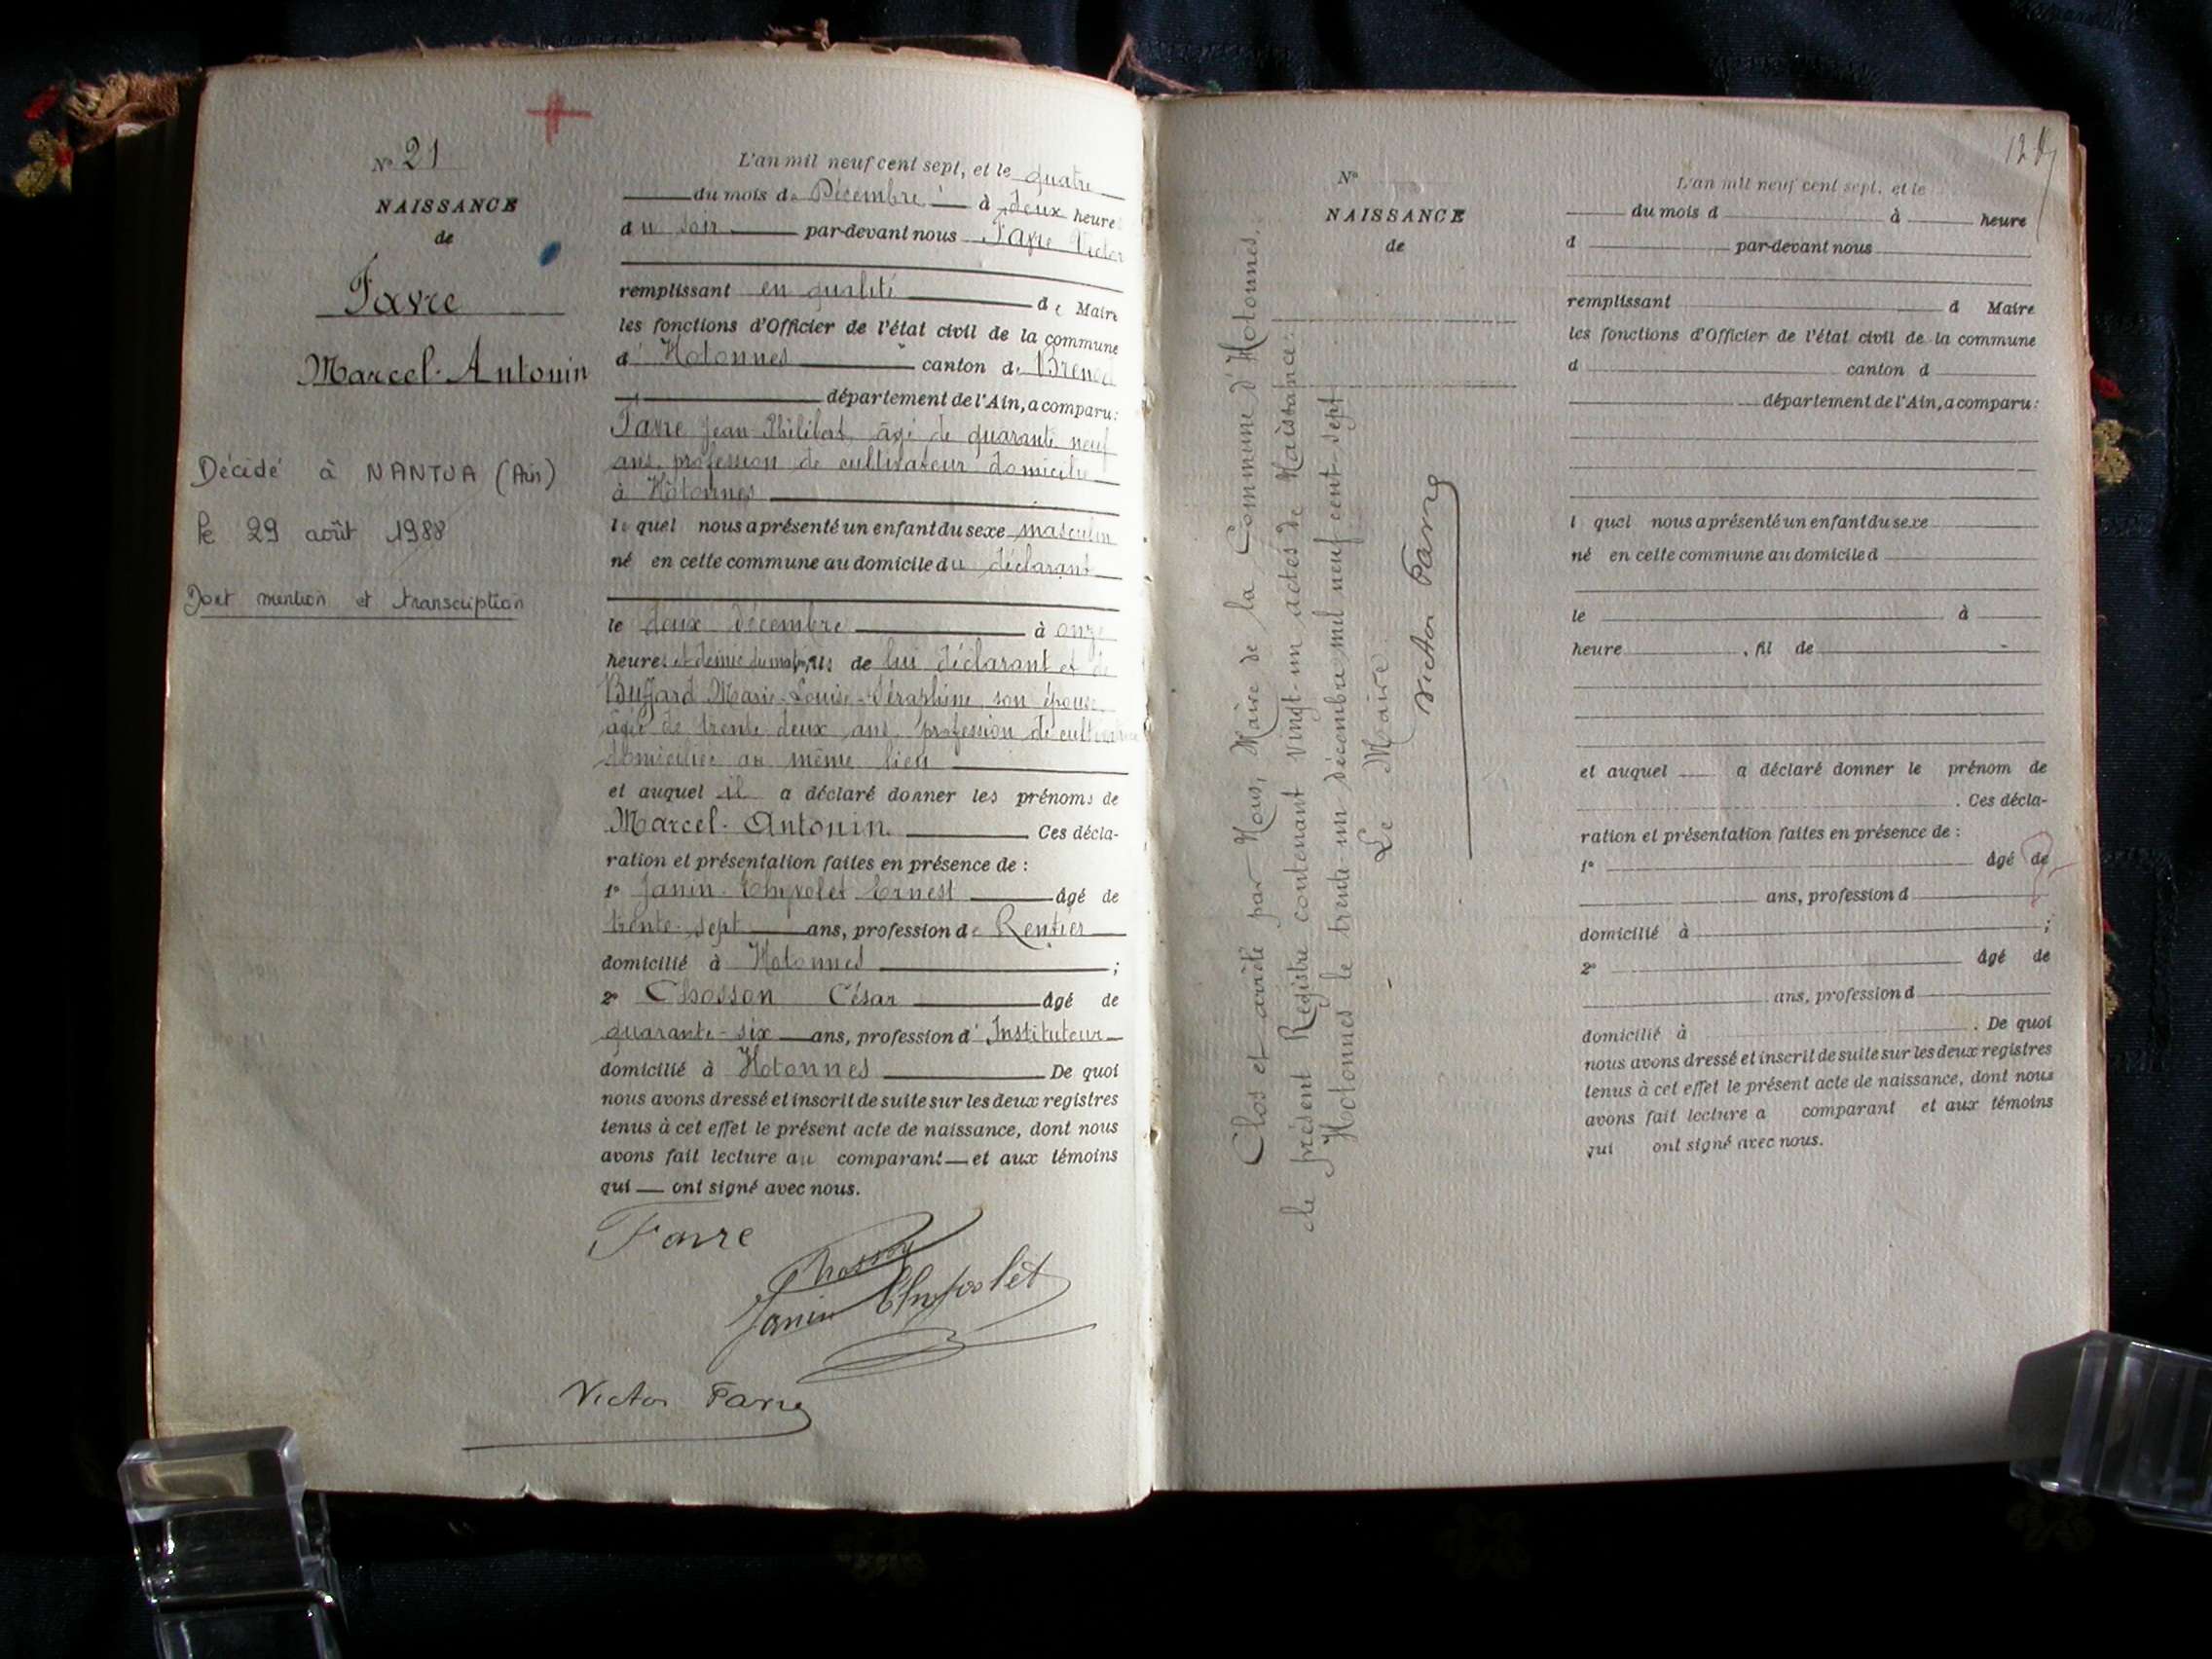 N° 21
NAISSANCE
de
Favre
Marcel-Antonin
Décédé à NANTUA (Ain)
le 29 août 1988
Dont mention et transcription
L'an mil neuf cent sept, et le quatre
du mois de Décembre à deux heures
du soir par-devant nous Favre Victor
remplissant en qualité de Maire
les fonctions d'Officier de l'état civil de la commune
d'Hotonnes canton de Brenod
département de l'Ain, a comparu:
Favre Jean Philibert, âgé de quarante neuf
ans, profession de cultivateur domicilié
à Hotonnes
lequel nous a présenté un enfant du sexe masculin
né en cette commune au domicile du déclarant
le deux décembre à onze
heures et demie du matin, fils de lui déclarant et de
Buffard Marie-Louise-Séraphine son épouse,
âgée de trente deux ans, profession de
domiciliée au même lieu
et auquel il a déclaré donner les prénoms de
Marcel-Antonin. Ces décla-
ration et présentation faites en présence de :
1° Janin Ernest âgé de
trente-sept ans, profession de Rentier
domicilié à Hotonnes ;
2° Chosson César âgé de
quarante-six ans, profession d'Instituteur
domicilié à Hotonnes De quoi
nous avons dressé et inscrit de suite sur les deux registres
tenus à cet effet le présent acte de naissance, dont nous
avons fait lecture au comparant et aux témoins
qui ont signé avec nous.
Favre
Chosson
Janin
Victor Favre
N°
NAISSANCE
de
Clos et arrêté par Nous, Maire de la Commune d'Hotonnes,
le présent Registre contenant vingt-un actes de Naissance.
Hotonnes le trente-un décembre mil neuf cent sept
Le Maire
Victor Favre
L'an mil neuf cent sept, et le
du mois d à heure
d par-devant nous
remplissant d Maire
les fonctions d'Officier de l'état civil de la commune
d canton d
département de l'Ain, a comparu:
l quel nous a présenté un enfant du sexe
né en cette commune au domicile d
le à
heure , fil de
et auquel a déclaré donner le prénom de
. Ces décla-
ration et présentation faites en présence de :
1° âgé de
ans, profession d
domicilié à ;
2° âgé de
ans, profession d
domicilié à . De quoi
nous avons dressé et inscrit de suite sur les deux registres
tenus à cet effet le présent acte de naissance, dont nous
avons fait lecture a comparant et aux témoins
qui ont signé avec nous.